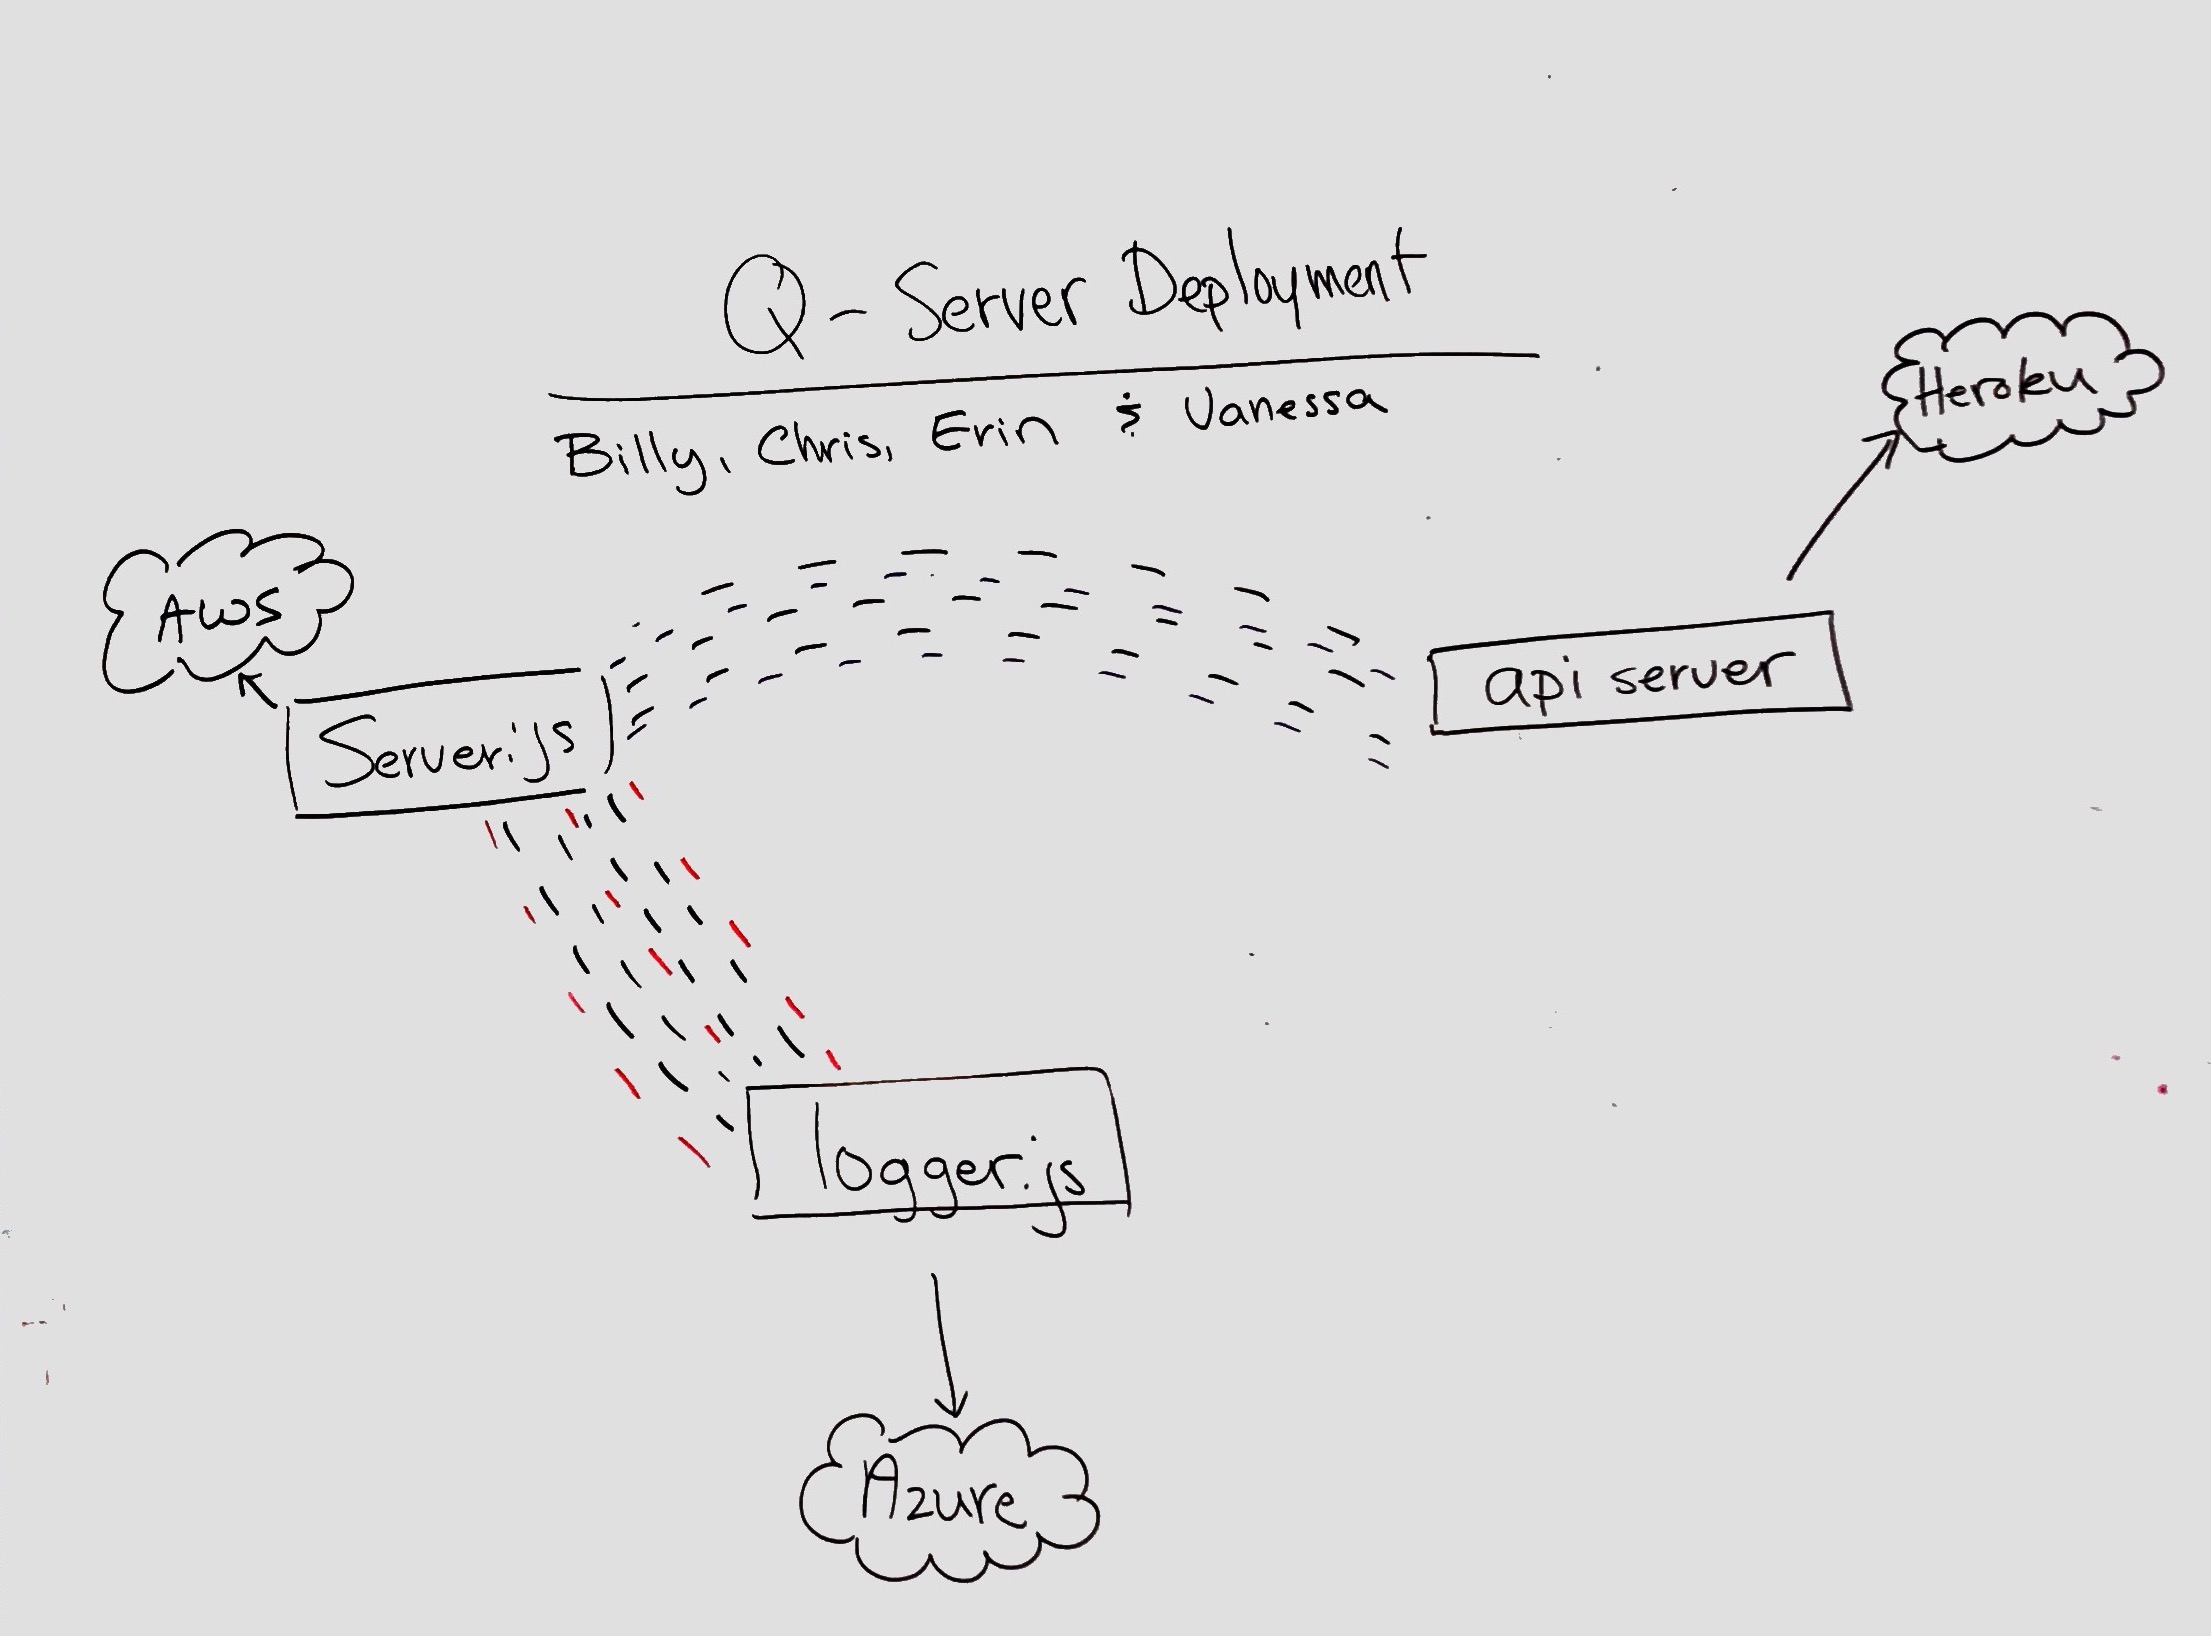 Q - Server Deployment
Billy, Chris, Erin & Vanessa
Heroku
AWS
api server
Server.js
logger.js
Azure